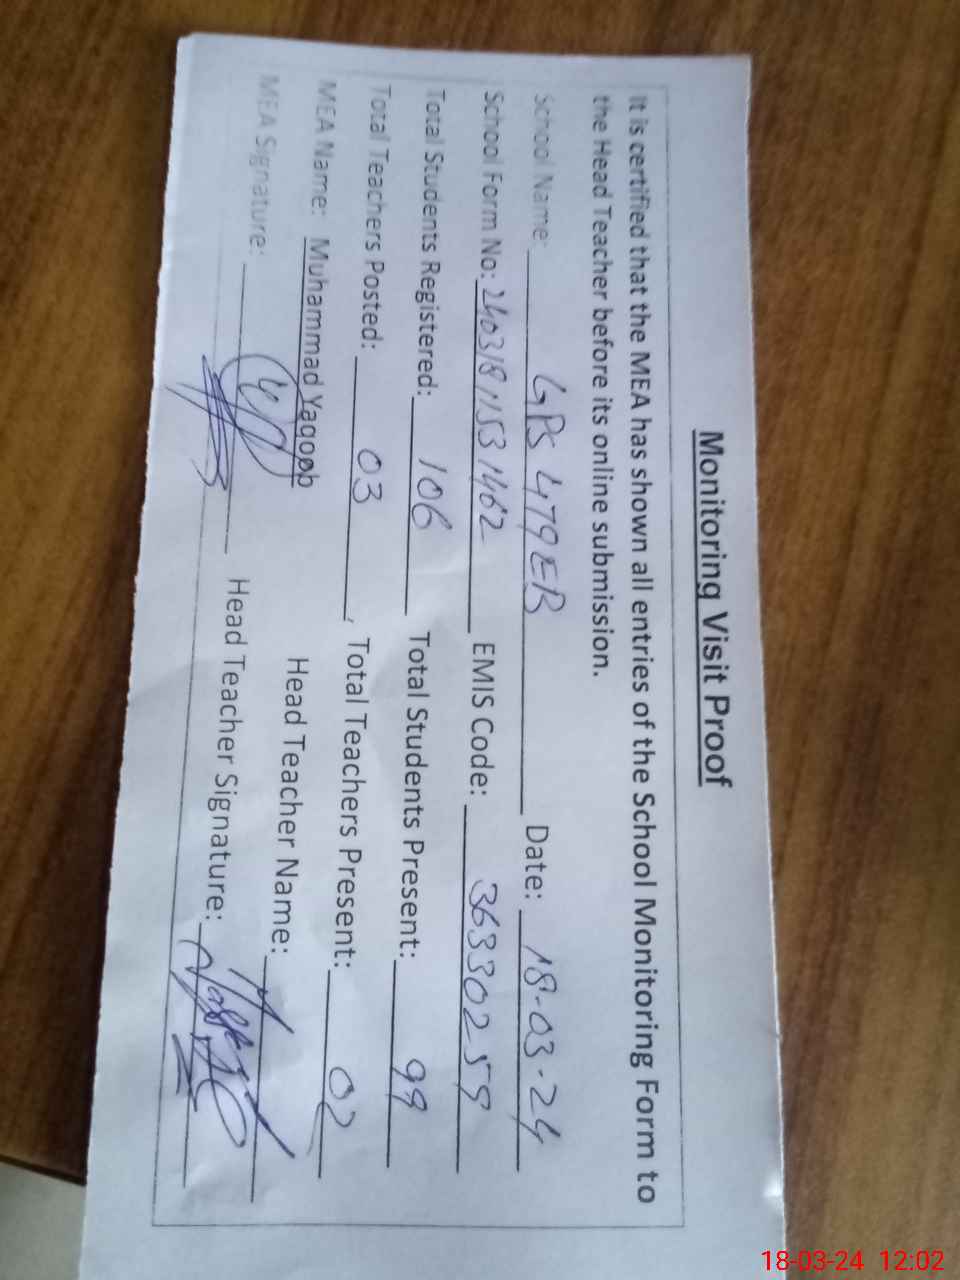 Monitoring Visit Proof
It is certified that the MEA has shown all entries of the School Monitoring Form to
the Head Teacher before its online submission.
School Name: GPS 479EB Date: 18-03-24
School Form No: 24031811531462 EMIS Code: 36330259
Total Students Registered: 106 Total Students Present: 99
Total Teachers Posted: 03, Total Teachers Present: 02
MEA Name: Muhammad Yaqoob Head Teacher Name:
MEA Signature: Head Teacher Signature:
18-03-24 12:02